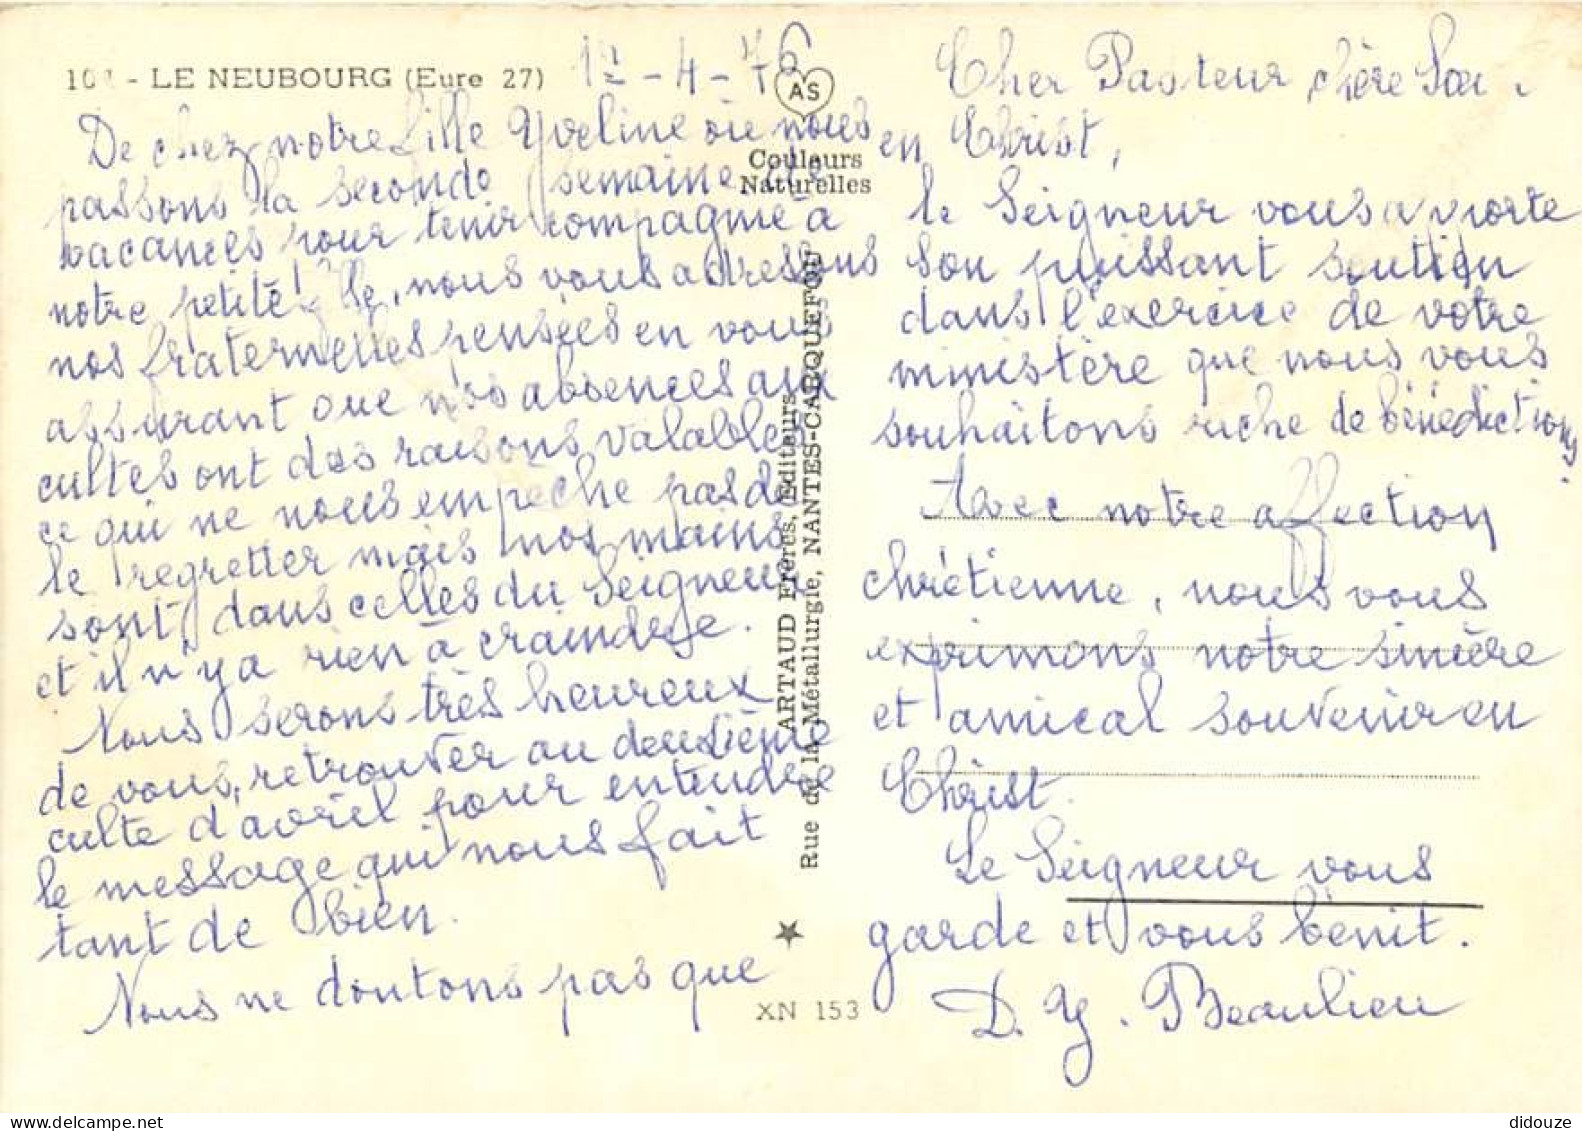 10 - LE NEUBOURG (Eure 27)
1er - 4 - 76
AS
Couleurs
Naturelles
Cher Pasteur, chère Sœu
en Christ,
De chez notre fille Yveline où nous
passons la seconde semaine de
vacances pour tenir compagnie à
notre petite fille, nous vous adressons
nos fraternelles pensées en vous
assurant que nos absences aux
cultes ont des raisons valables
ce qui ne nous empêche pas de
le regretter mais nos mains
sont dans celles du Seigneur
et il n'y a rien à craindre.
Nous serons très heureux
de vous retrouver au deuxième
culte d'avril pour entendre
le message qui nous fait
tant de bien.
Nous ne doutons pas que
le Seigneur vous apporte
son puissant soutien
dans l'exercice de votre
ministère que nous vous
souhaitons riche de bénédictions.
Avec notre affection
chrétienne, nous vous
exprimons notre sincère
et amical souvenir en
Christ.
Le Seigneur vous
garde et vous bénit.
D. Y. Beaulieu
ARTAUD Frères, Editeurs
Rue de la Métallurgie, NANTES-CARQUEFOU
XN 153
didouze